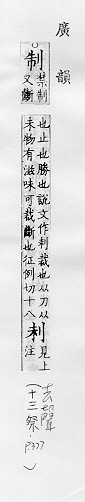 廣韻
制
禁制
又斷
也止也勝也說文作𠛐裁也从刀从
未物有滋味可裁斷也征例切十八
𠛐
見上
注
(去聲
十三祭.P377)